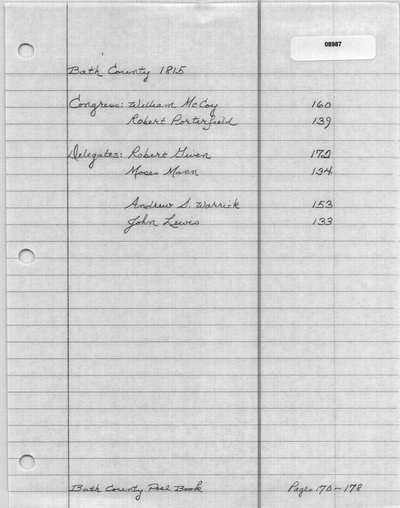 08987
Bath County 1815
Congress: William McCoy 160
Robert Porterfield 139
Delegates: Robert Given 172
Moses Mann 134
Andrew S. Warrick 153
John Lewis 133
Bath County Poll Book Pages 170-178